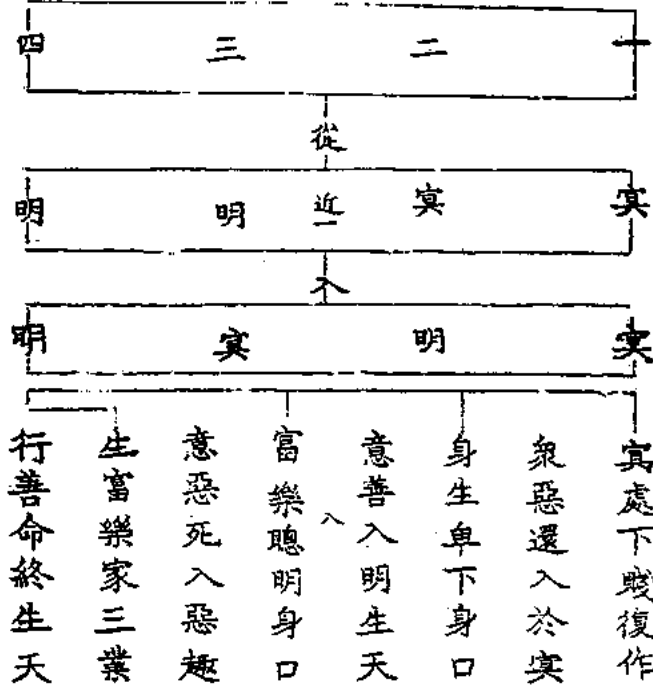 一 二 三 四
從
㝠 㝠 近 明 明
入
㝠 明 㝠 明
㝠處下賤復作
衆惡還入於㝠
身生卑下身口
意善入明生天
入
富樂聰明身口
意惡死入惡趣
生富樂家三業
行善命終生天